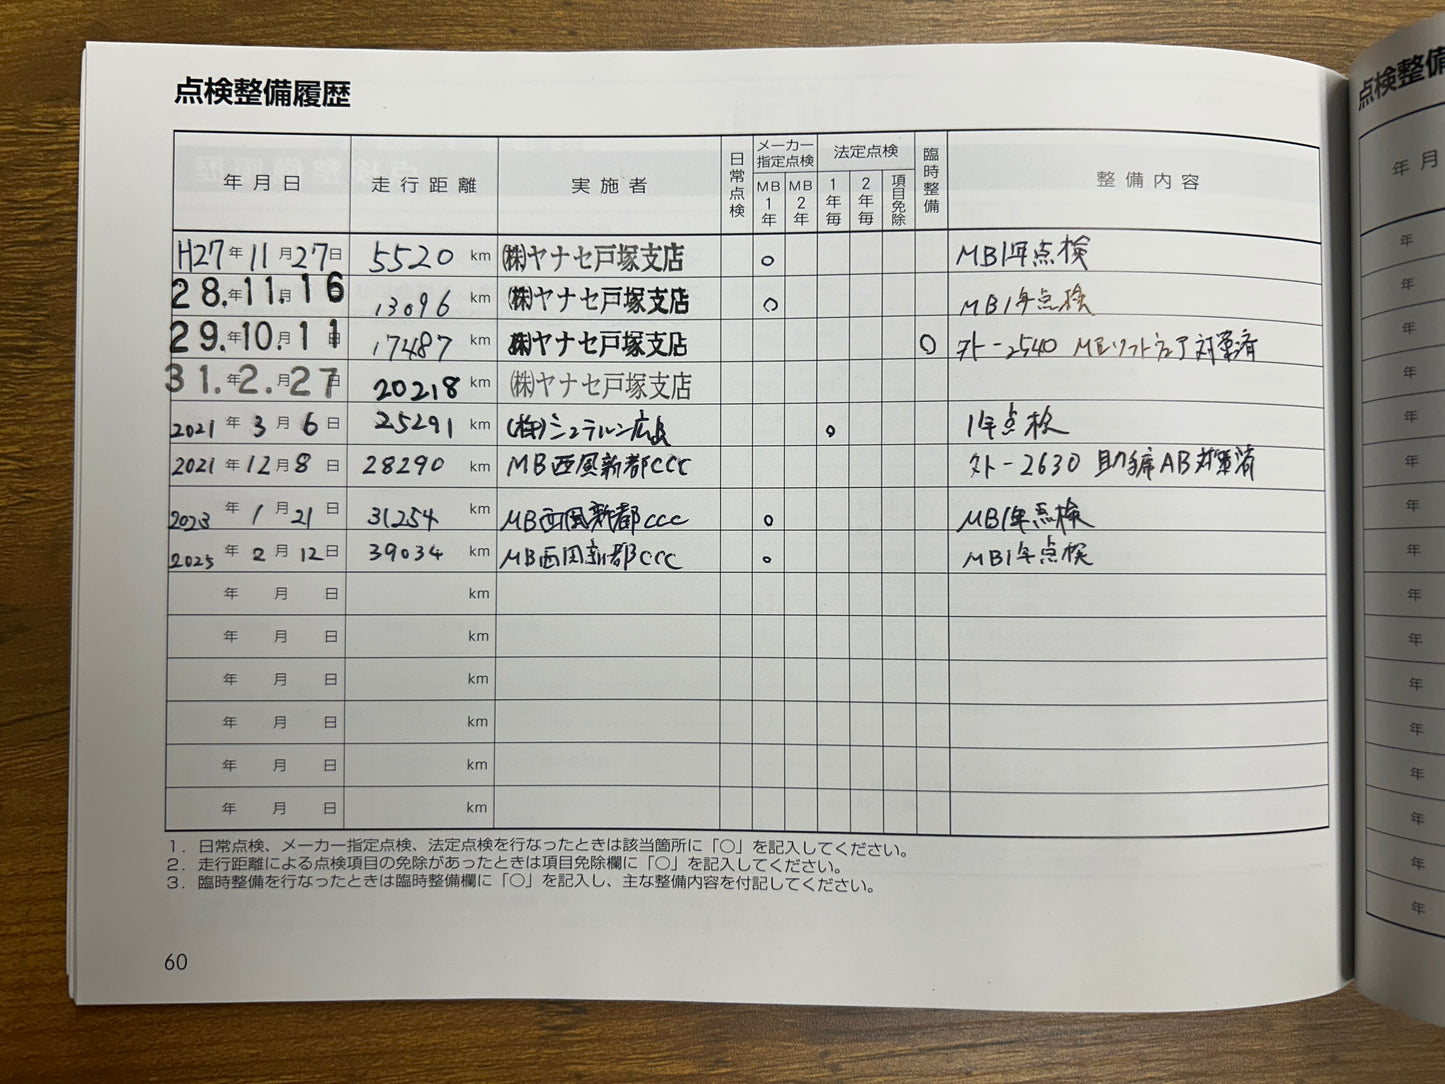 点検整備履歴
年月日 走行距離 実施者 日常点検 メーカー指定点検 MB1年 MB2年 法定点検 1年毎 2年毎 項目免除 臨時整備 整備内容
H27年11月27日 5520 km ㈱ヤナセ戸塚支店 ○ MB1年点検
28.年11.月16 13096 km ㈱ヤナセ戸塚支店 ○ MB1年点検
29.年10.月11日 17487 km ㈱ヤナセ戸塚支店 ○ 外-2540 MEソフト 対策済
31.年2.月27日 20218 km ㈱ヤナセ戸塚支店
2021年3月6日 25291 km (株)シュテルン広島 ○ 1年点検
2021年12月8日 28290 km MB西風新都CCC 外-2630 助手席AB対策済
2023年1月21日 31254 km MB西風新都CCC ○ MB1年点検
2025年2月12日 39034 km MB西風新都CCC ○ MB1年点検
年 月 日 km
年 月 日 km
年 月 日 km
年 月 日 km
年 月 日 km
年 月 日 km
1．日常点検、メーカー指定点検、法定点検を行なったときは該当箇所に「○」を記入してください。
2．走行距離による点検項目の免除があったときは項目免除欄に「○」を記入してください。
3．臨時整備を行なったときは臨時整備欄に「○」を記入し、主な整備内容を付記してください。
60
点検整備
年月
年
年
年
年
年
年
年
年
年
年
年
年
年
年
年
年